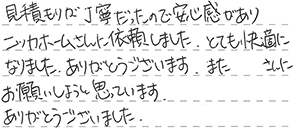 見積もりが丁寧だったので安心感があり
ニッカホームさんに依頼しました。とても快適に
なりました。ありがとうございます。また　　さんに
お願いしようと思っています。
ありがとうございました。